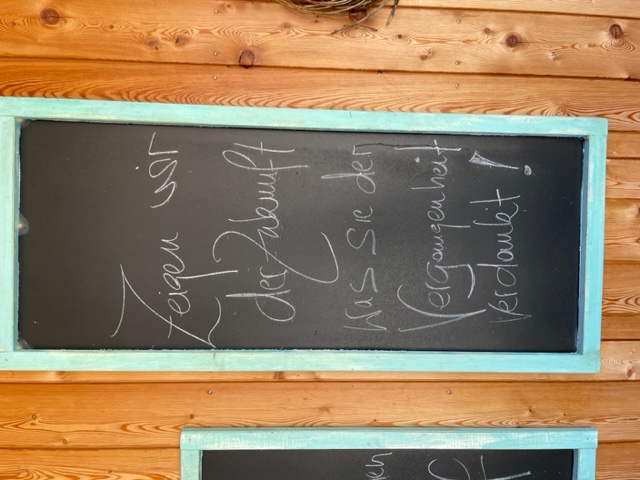 Zeigen wir
der Zukunft
Was sie der
Vergangenheit
verdankt!